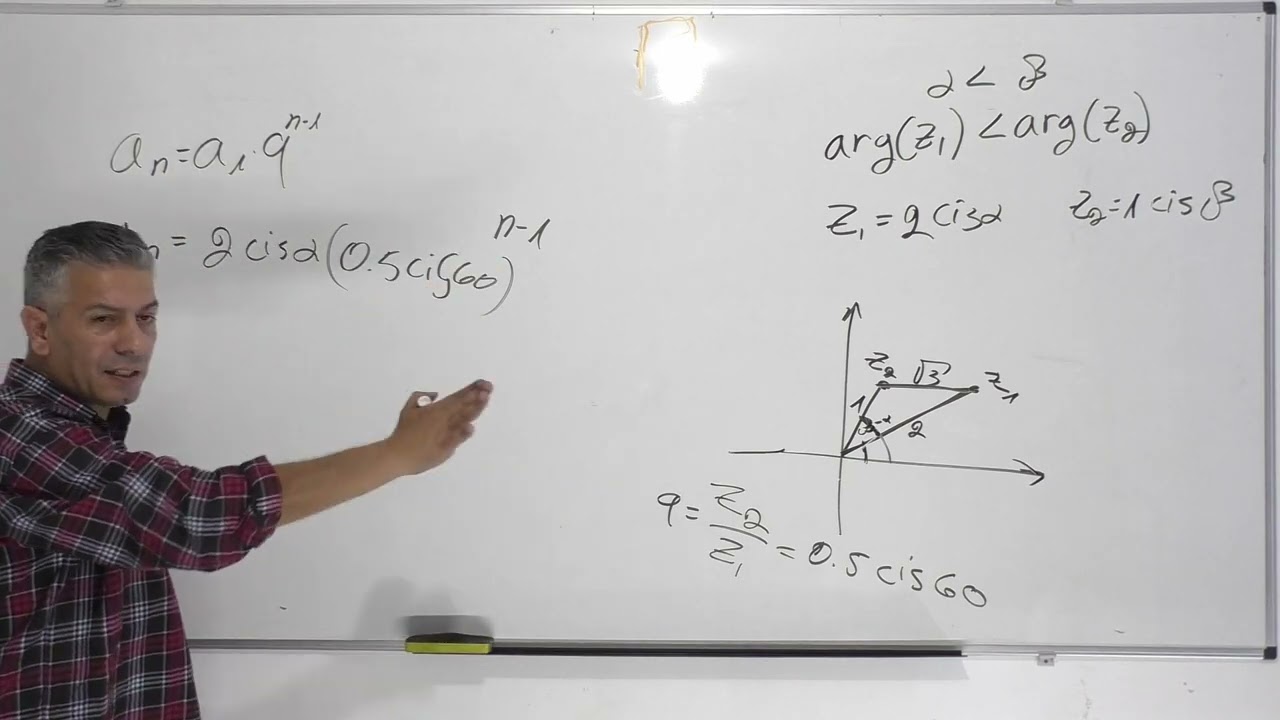 aₙ=a₁·qⁿ⁻¹
n = 2cisα(0.5cis60)ⁿ⁻¹
α < β
arg(z₁) < arg(z₂)
z₁ = 2cisα z₂=1cisβ
z₂ √3 z₁
1 β-α 2
q = z₂/z₁ = 0.5cis60